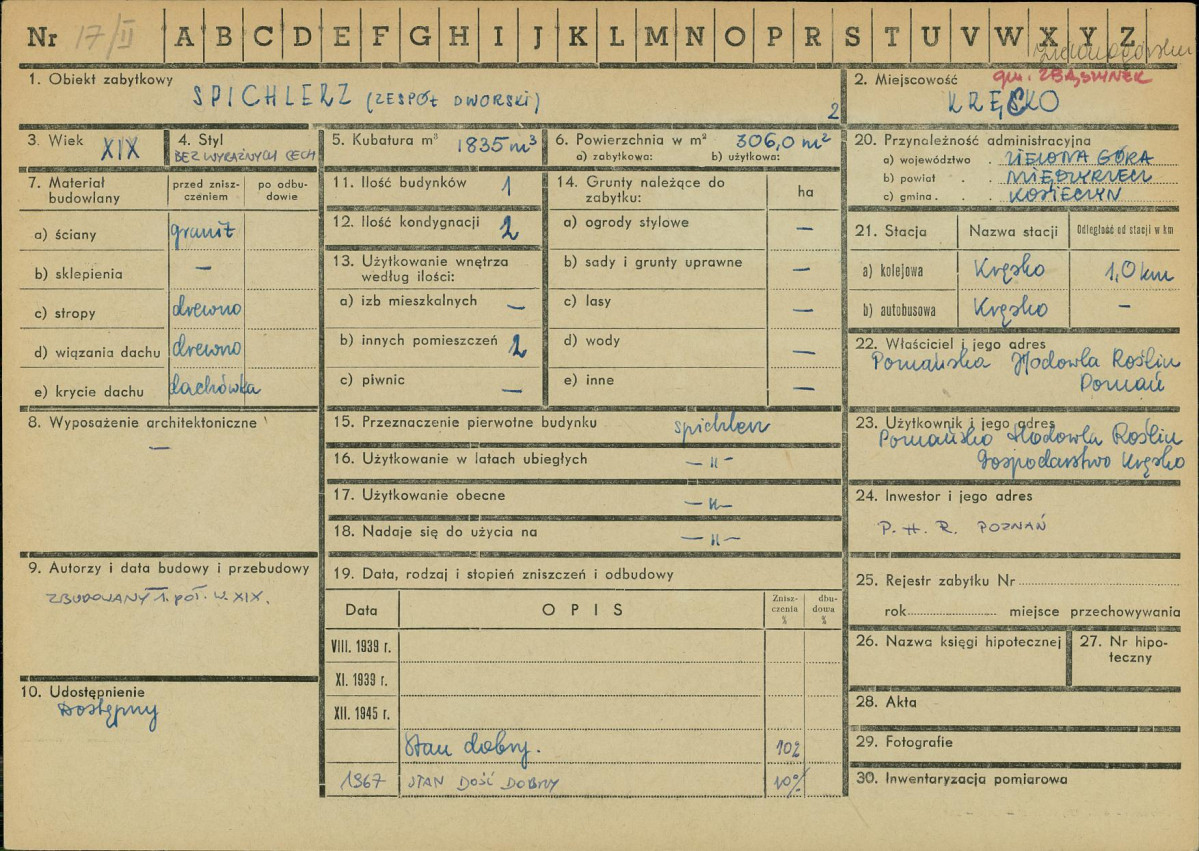 Nr 17/II A B C D E F G H I J K L M N O P R S T U V W X Y Z
1. Obiekt zabytkowy
SPICHLERZ (ZESPÓŁ DWORSKI)
2
2. Miejscowość gm. ZBĄSZYNEK
KRĘSKO
3. Wiek XIX
4. Styl
BEZ WYRAŹNYCH CECH
5. Kubatura m³ 1835 m³
6. Powierzchnia w m² 306,0 m²
a) zabytkowa: b) użytkowa:
7. Materiał budowlany
przed zniszczeniem
po odbudowie
a) ściany granit
b) sklepienia —
c) stropy drewno
d) wiązania dachu drewno
e) krycie dachu dachówka
8. Wyposażenie architektoniczne
—
9. Autorzy i data budowy i przebudowy
ZBUDOWANY 1. POŁ. W. XIX.
10. Udostępnienie
Dostępny
11. Ilość budynków 1
12. Ilość kondygnacji 2
13. Użytkowanie wnętrza
według ilości:
a) izb mieszkalnych —
b) innych pomieszczeń 2
c) piwnic —
14. Grunty należące do
zabytku: ha
a) ogrody stylowe —
b) sady i grunty uprawne —
c) lasy —
d) wody —
e) inne —
15. Przeznaczenie pierwotne budynku spichlerz
16. Użytkowanie w latach ubiegłych — " —
17. Użytkowanie obecne — " —
18. Nadaje się do użycia na — " —
19. Data, rodzaj i stopień zniszczeń i odbudowy
Data OPIS Zniszczenia % dbudowa %
VIII. 1939 r.
XI. 1939 r.
XII. 1945 r.
Stan dobry. 10%
1967 STAN DOŚĆ DOBRY 10%
20. Przynależność administracyjna
a) województwo . ZIELONA GÓRA
b) powiat . . MIĘDZYRZECZ
c) gmina . . . KOSIECZYN
21. Stacja Nazwa stacji Odległość od stacji w km
a) kolejowa Kręsko 1,0 km
b) autobusowa Kręsko —
22. Właściciel i jego adres
Poznańska Hodowla Roślin
Poznań
23. Użytkownik i jego adres
Poznańska Hodowla Roślin
Gospodarstwo Kręsko
24. Inwestor i jego adres
P. H. R. POZNAŃ
25. Rejestr zabytku Nr
rok miejsce przechowywania
26. Nazwa księgi hipotecznej
27. Nr hipoteczny
28. Akta
29. Fotografie
30. Inwentaryzacja pomiarowa